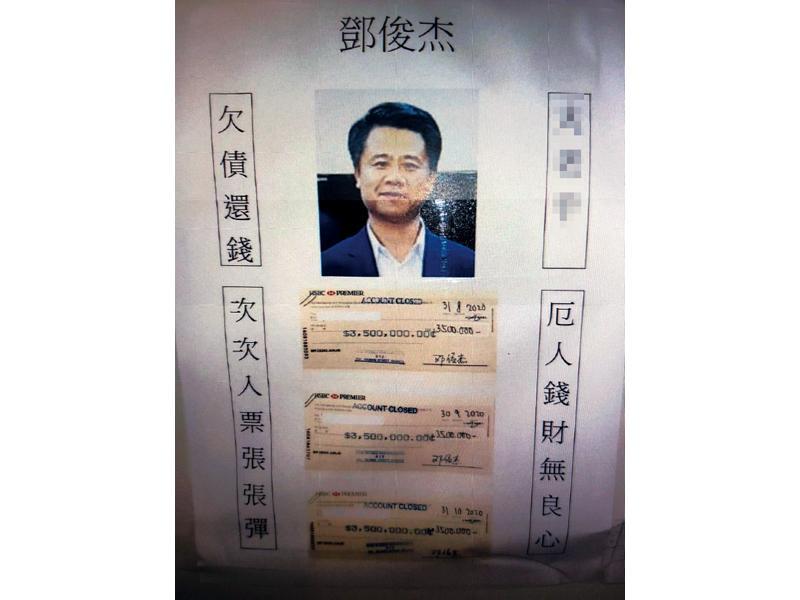 鄧俊杰
欠債還錢
次次入票張張彈
HSBC PREMIER
ACCOUNT CLOSED
31 8 2020
$3,500,000.00
3500,000-
鄧俊杰
HSBC PREMIER
ACCOUNT CLOSED
30 9 2020
$3,500,000.00
3500,000-
鄧俊杰
HSBC PREMIER
ACCOUNT CLOSED
31 10 2020
$3,500,000.00
3500,000-
厄人錢財無良心